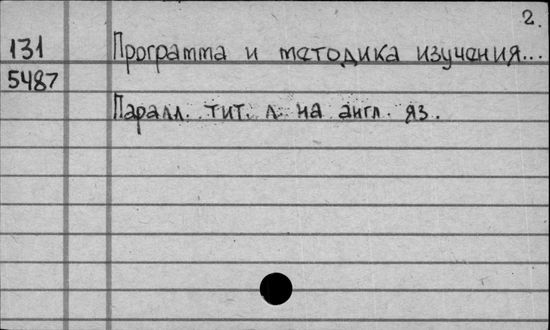 2.
131 Программа и методика изучения...
5487
Паралл. тит. л. на англ. яз.